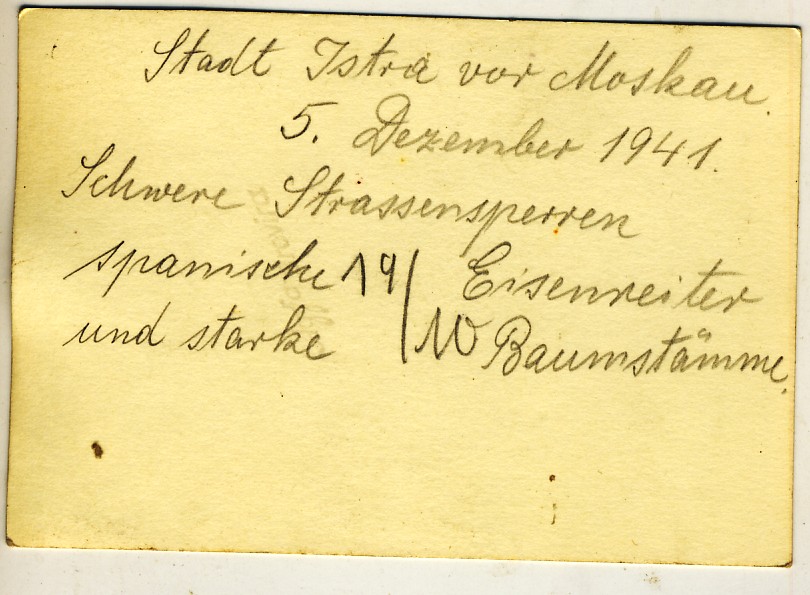 Stadt Istra vor Moskau.
5. Dezember 1941.
Schwere Strassensperren
spanische 19/10 Eisenreiter
und starke Baumstämme.